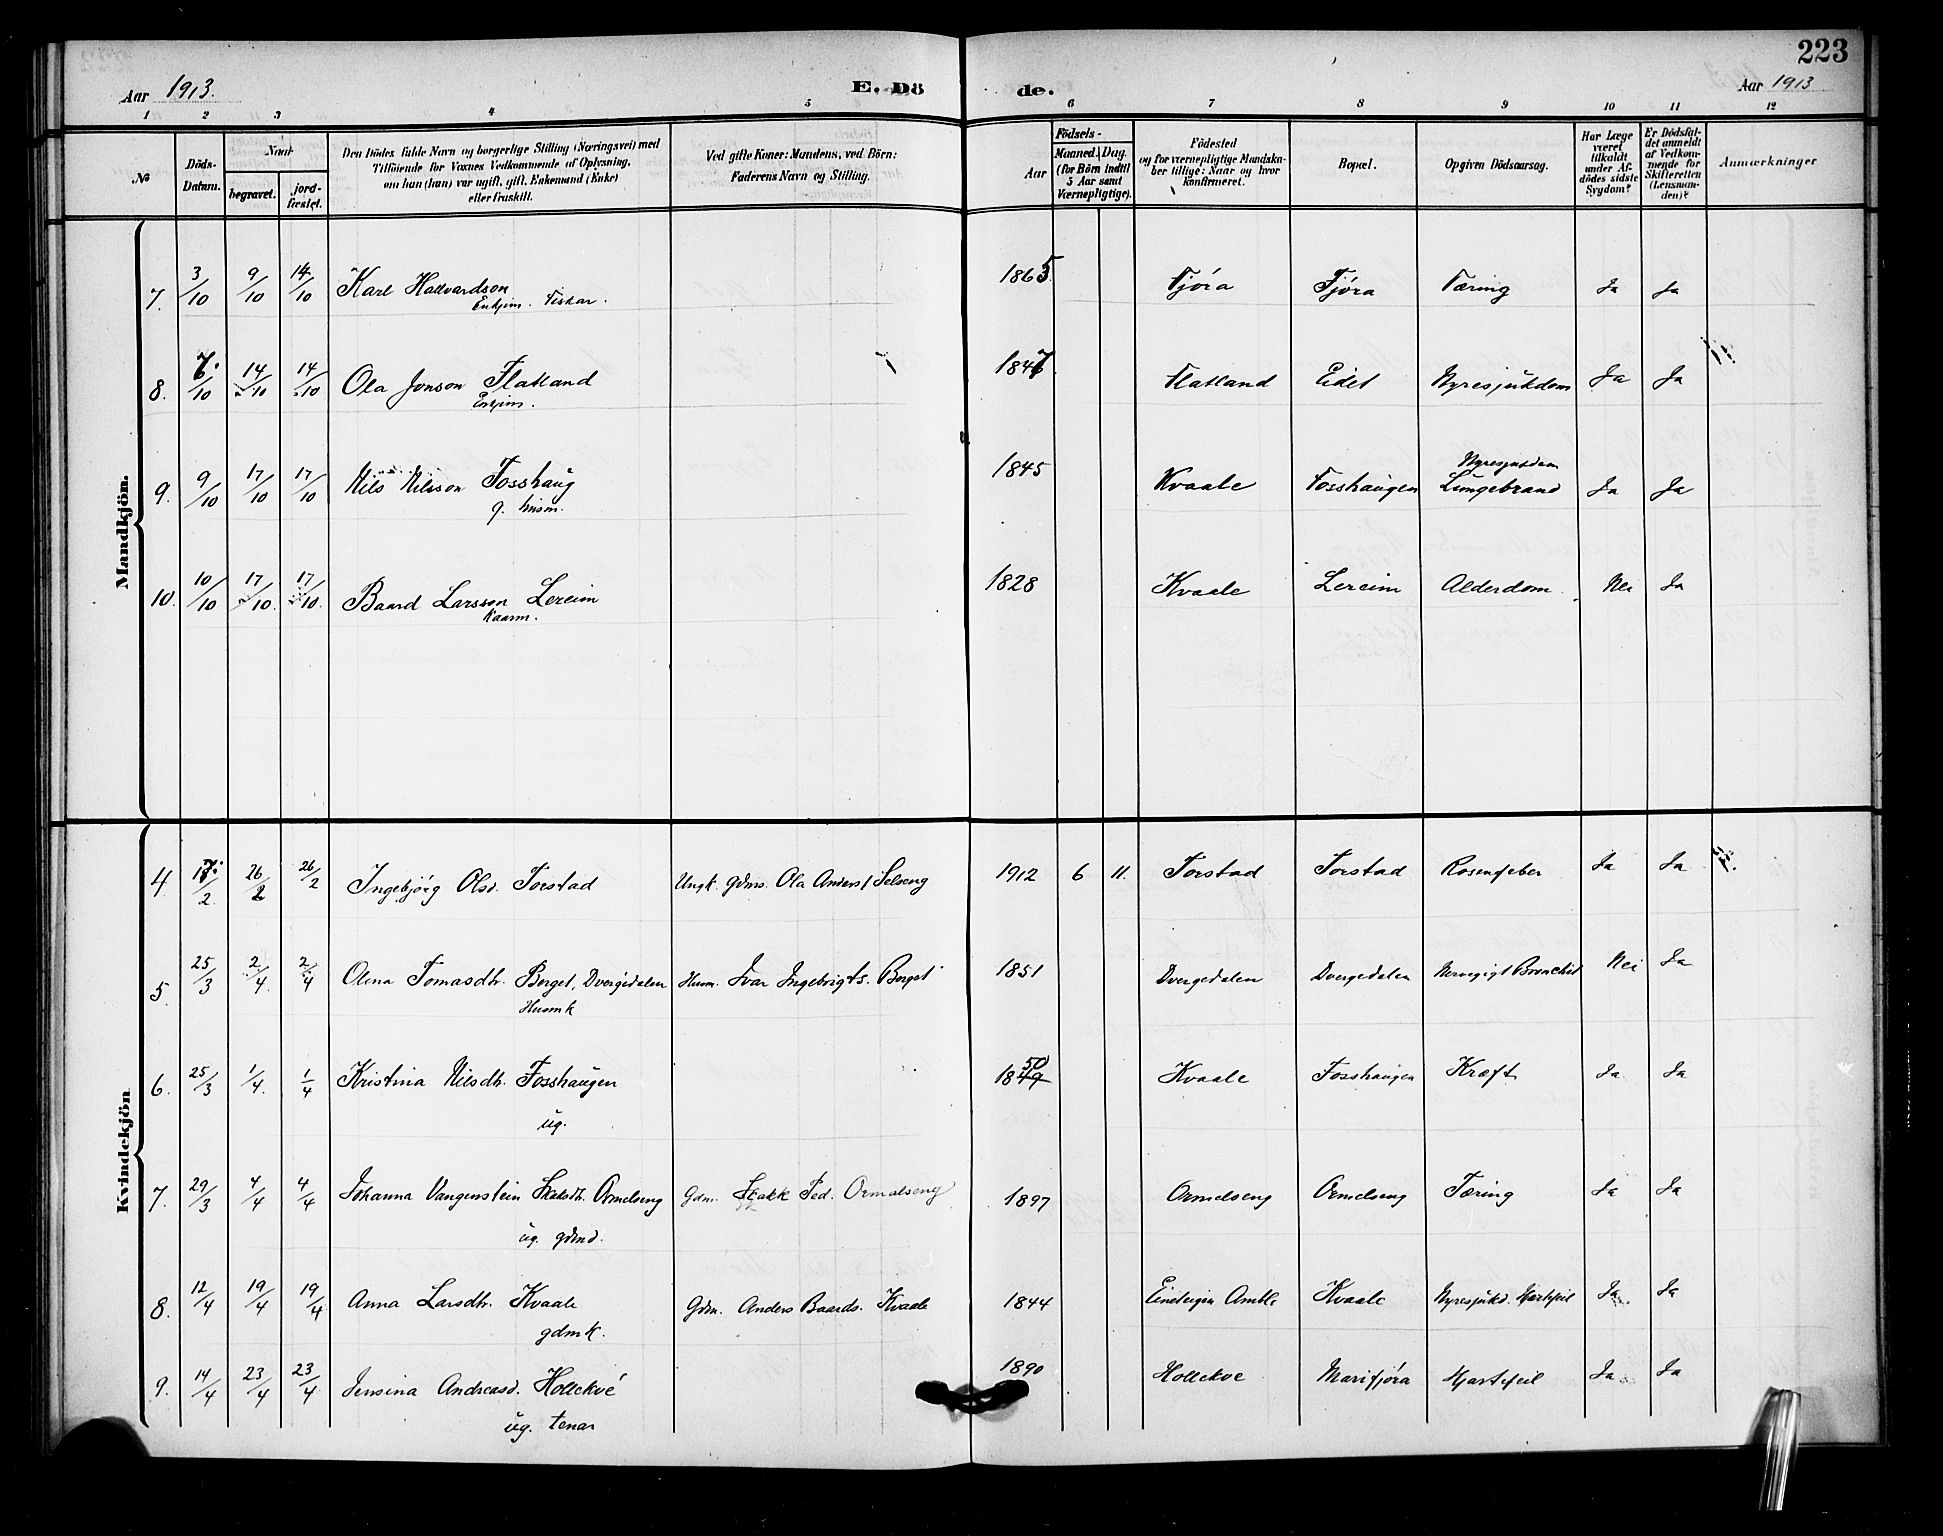 223
Aar 1913. E. Dö de. Aar 1913
1 2 3 4 5 6 7 8 9 10 11 12
No
Döds-Datum.
Naar
begravet.
jord-fæstet.
Den Dödes fulde Navn og borgerlige Stilling (Næringsvei) med
Tilföiende for Voxnes Vedkommende af Oplysning,
om han (hun) var ugift, gift, Enkemand (Enke)
eller fraskilt.
Ved gifte Koner: Mandens, ved Börn:
Faderens Navn og Stilling.
Födsels-
Aar
Maaned. Dag.
(for Börn indtil
5 Aar samt
Værnepligtige).
Födested
og for værnepligtige Mandska-
ber tillige: Naar og hvor
konfirmeret.
Bopæl.
Opgiven Dödsaarsag.
Har Læge
været
tilkaldt
under Af-
dödes sidste
Sygdom?
Er Dödsfal-
det anmeldt
af Vedkom-
mende for
Skifteretten
(Lensman-
den)?
Anmærkninger
Mandkjön.
7. 3/10 9/10 14/10 Karl Hallvardson 1865 Fjöra Fjöra Tæring Ja Ja
Enkjim. Fiskar.
8. 7/10 14/10 14/10 Ola Jonson Flatland 1847 Flatland Eidet Nyresjukdom Ja Ja
Enkjim.
9. 9/10 17/10 17/10 Nils Nilsson Fosshaug 1845 Kvaale Fosshaugen Nyresjukdom Lungebrand Ja Ja
g. husm.
10. 10/10 17/10 17/10 Baard Larsson Lereim 1828 Kvaale Lereim Alderdom Nei Ja
Kaarm.
Kvindekjön
4 17/2 26/2 26/2 Ingebjörg Olsd. Torstad Ungk. gdms. Ola Anders. Selseng 1912 6 11. Torstad Torstad Rosenfeber Ja Ja
5. 25/3 2/4. 2/4 Olena Tomasdtr. Berget, Dvergedalen Husm. Ivar Ingebrigts. Berget 1851 Dvergedalen Dvergedalen Bronchit Nei Ja
Husmk
6. 25/3 1/4. 1/4 Kristina Nilsdtr. Fosshaugen 1849 50 Kvaale Fosshaugen Kræft Ja Ja
ug.
7. 29/3 4/4 4/4 Johanna Vangenstein Ormelseng Gdm. Ped. Ormelseng 1897 Ormelseng Ormelseng Tæring Ja Ja
ug. gdmd.
8. 12/4 19/4 19/4 Anna Larsdtr. Kvaale Gdm. Anders Baards. Kvaale 1844 Amble Kvaale Nyresjukd. Hjartefeil Ja Ja
gdmk.
9. 14/4 23/4 23/4 Jensina Andreasd. Hollekve 1890 Hollekve Marifjöra Hjartefeil Ja Ja
ug. tenar